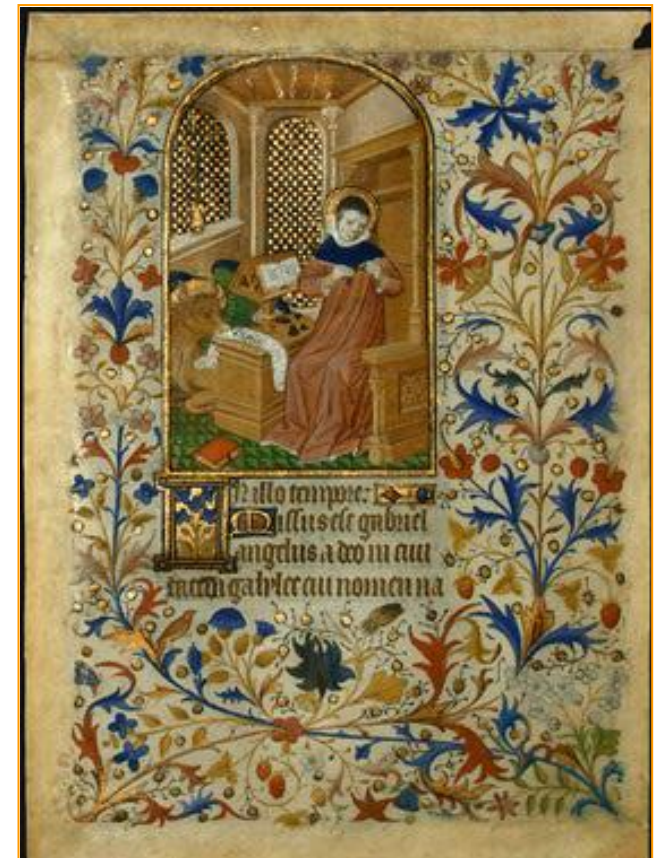 In illo tempore:
Missus est gabriel
angelus a deo in civi
tatem galylee cui nomen na